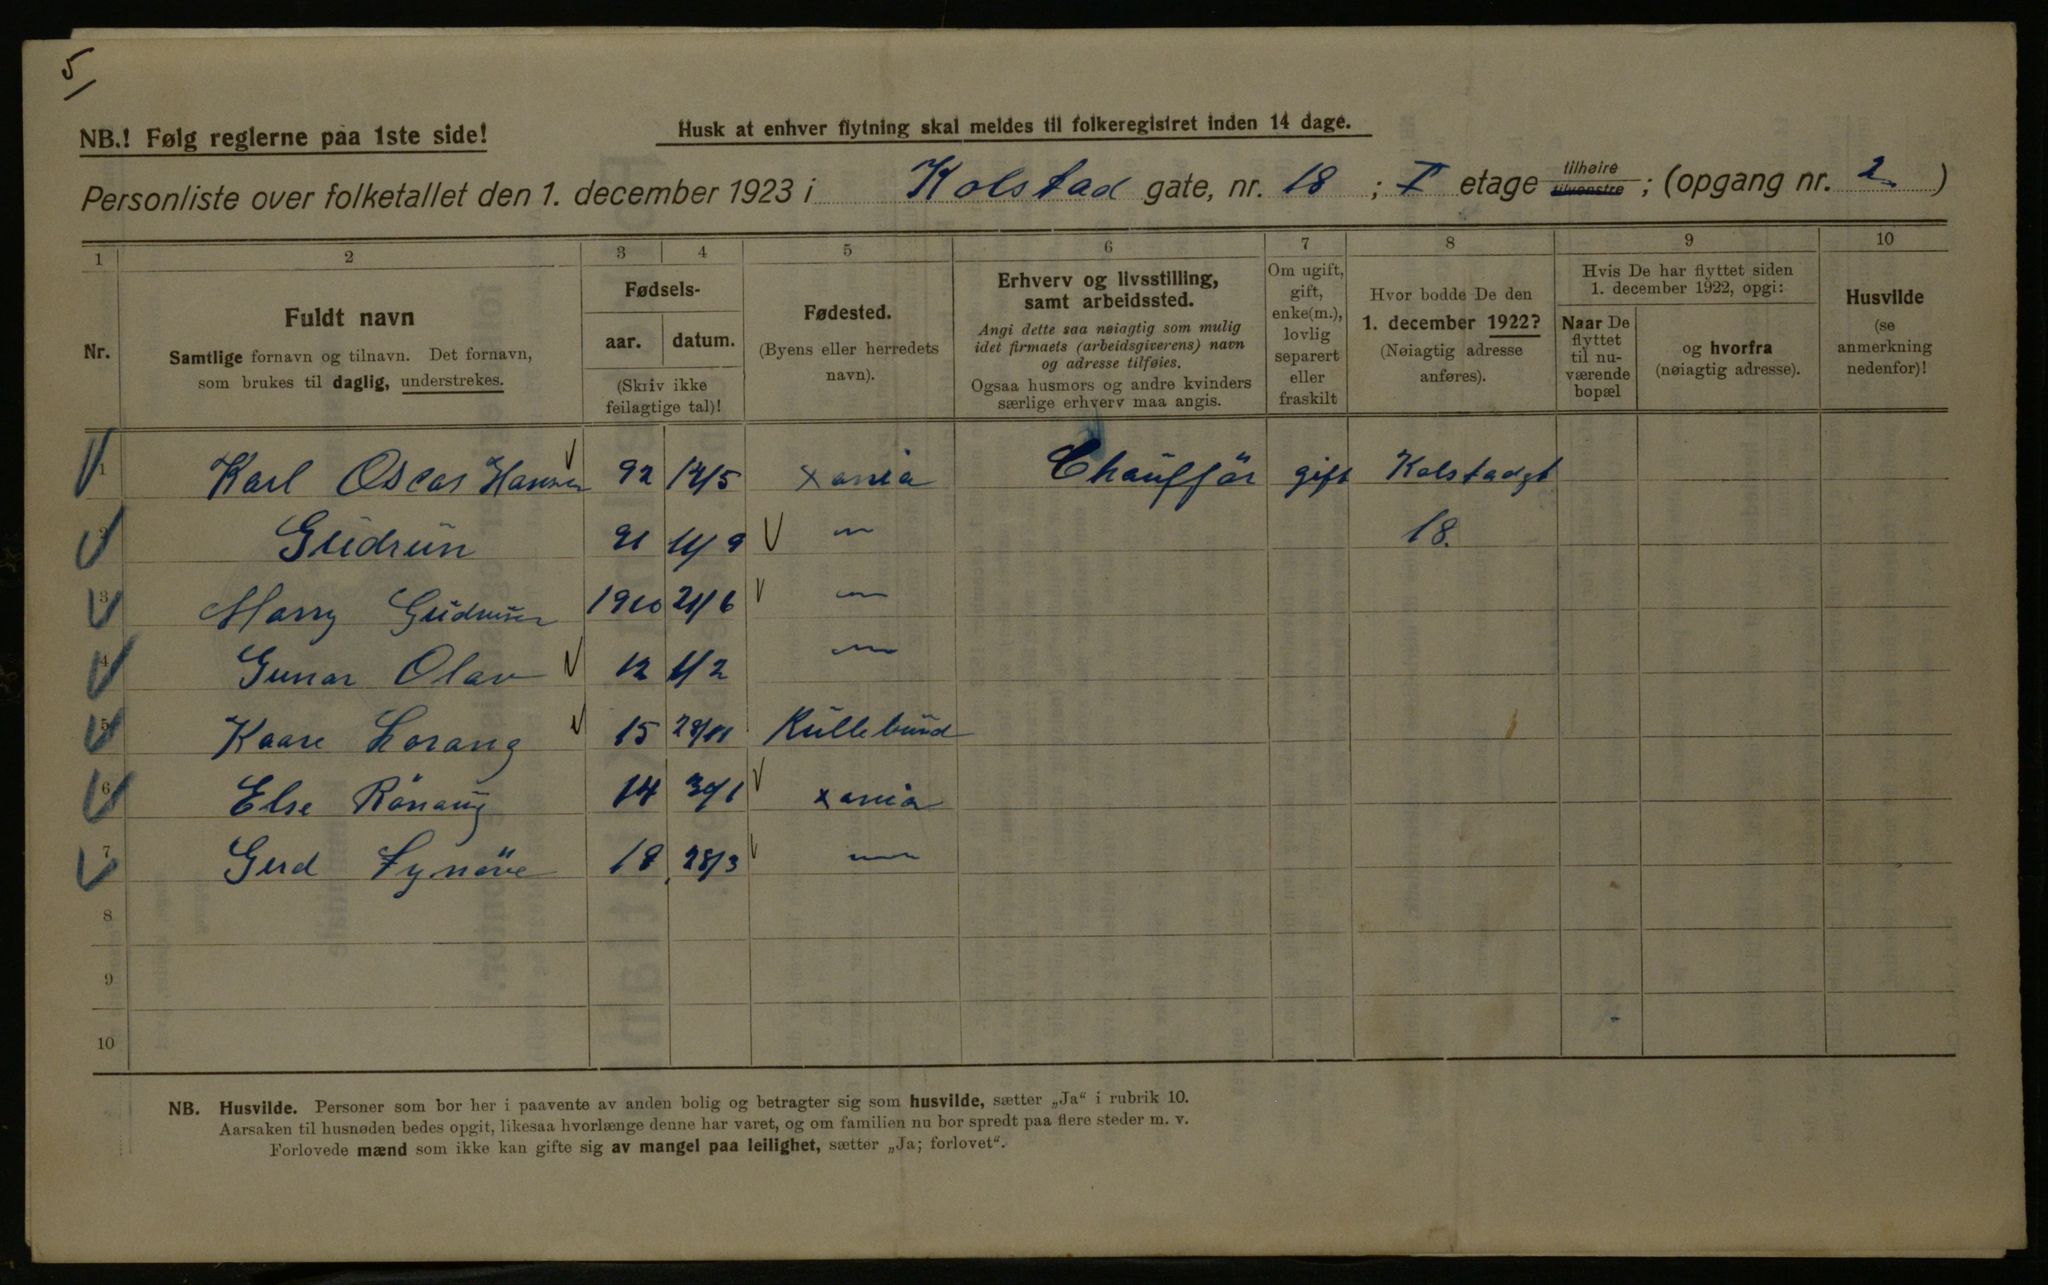 5/
NB.! Følg reglerne paa 1ste side!
Husk at enhver flytning skal meldes til folkeregistret inden 14 dage.
Personliste over folketallet den 1. december 1923 i Kolstad gate, nr. 18 ; I etage tilhøire tilvenstre ; (opgang nr. 2 )
1 2 3 4 5 6 7 8 9 10
Nr.
Fuldt navn
Samtlige fornavn og tilnavn. Det fornavn,
som brukes til daglig, understrekes.
Fødsels-
aar. datum.
(Skriv ikke
feilagtige tal)!
Fødested.
(Byens eller herredets
navn).
Erhverv og livsstilling,
samt arbeidssted.
Angi dette saa nøiagtig som mulig
idet firmaets (arbeidsgiverens) navn
og adresse tilføies.
Ogsaa husmors og andre kvinders
særlige erhverv maa angis.
Om ugift,
gift,
enke(m.),
lovlig
separert
eller
fraskilt
Hvor bodde De den
1. december 1922?
(Nøiagtig adresse
anføres).
Hvis De har flyttet siden
1. december 1922, opgi:
Naar De
flyttet
til nu-
værende
bopæl
og hvorfra
(nøiagtig adresse).
Husvilde
(se
anmerkning
nedenfor)!
1 Karl Oscar Hansen 92 12/5 Xania Chaufför gift Kolstadgt
2 Gudrun 91 11/9 — 18.
3 Harry 1910 21/6 —
4 Gunar Olav 12 1/2 —
5 Kaare Lorang 15 Kullebund
6 Else Rönaug 14 30/1 Xania
7 Gerd Synöve 18 28/3 —
8
9
10
NB. Husvilde. Personer som bor her i paavente av anden bolig og betragter sig som husvilde, sætter „Ja“ i rubrik 10.
Aarsaken til husnøden bedes opgit, likesaa hvorlænge denne har varet, og om familien nu bor spredt paa flere steder m. v.
Forlovede mænd som ikke kan gifte sig av mangel paa leilighet, sætter „Ja; forlovet“.